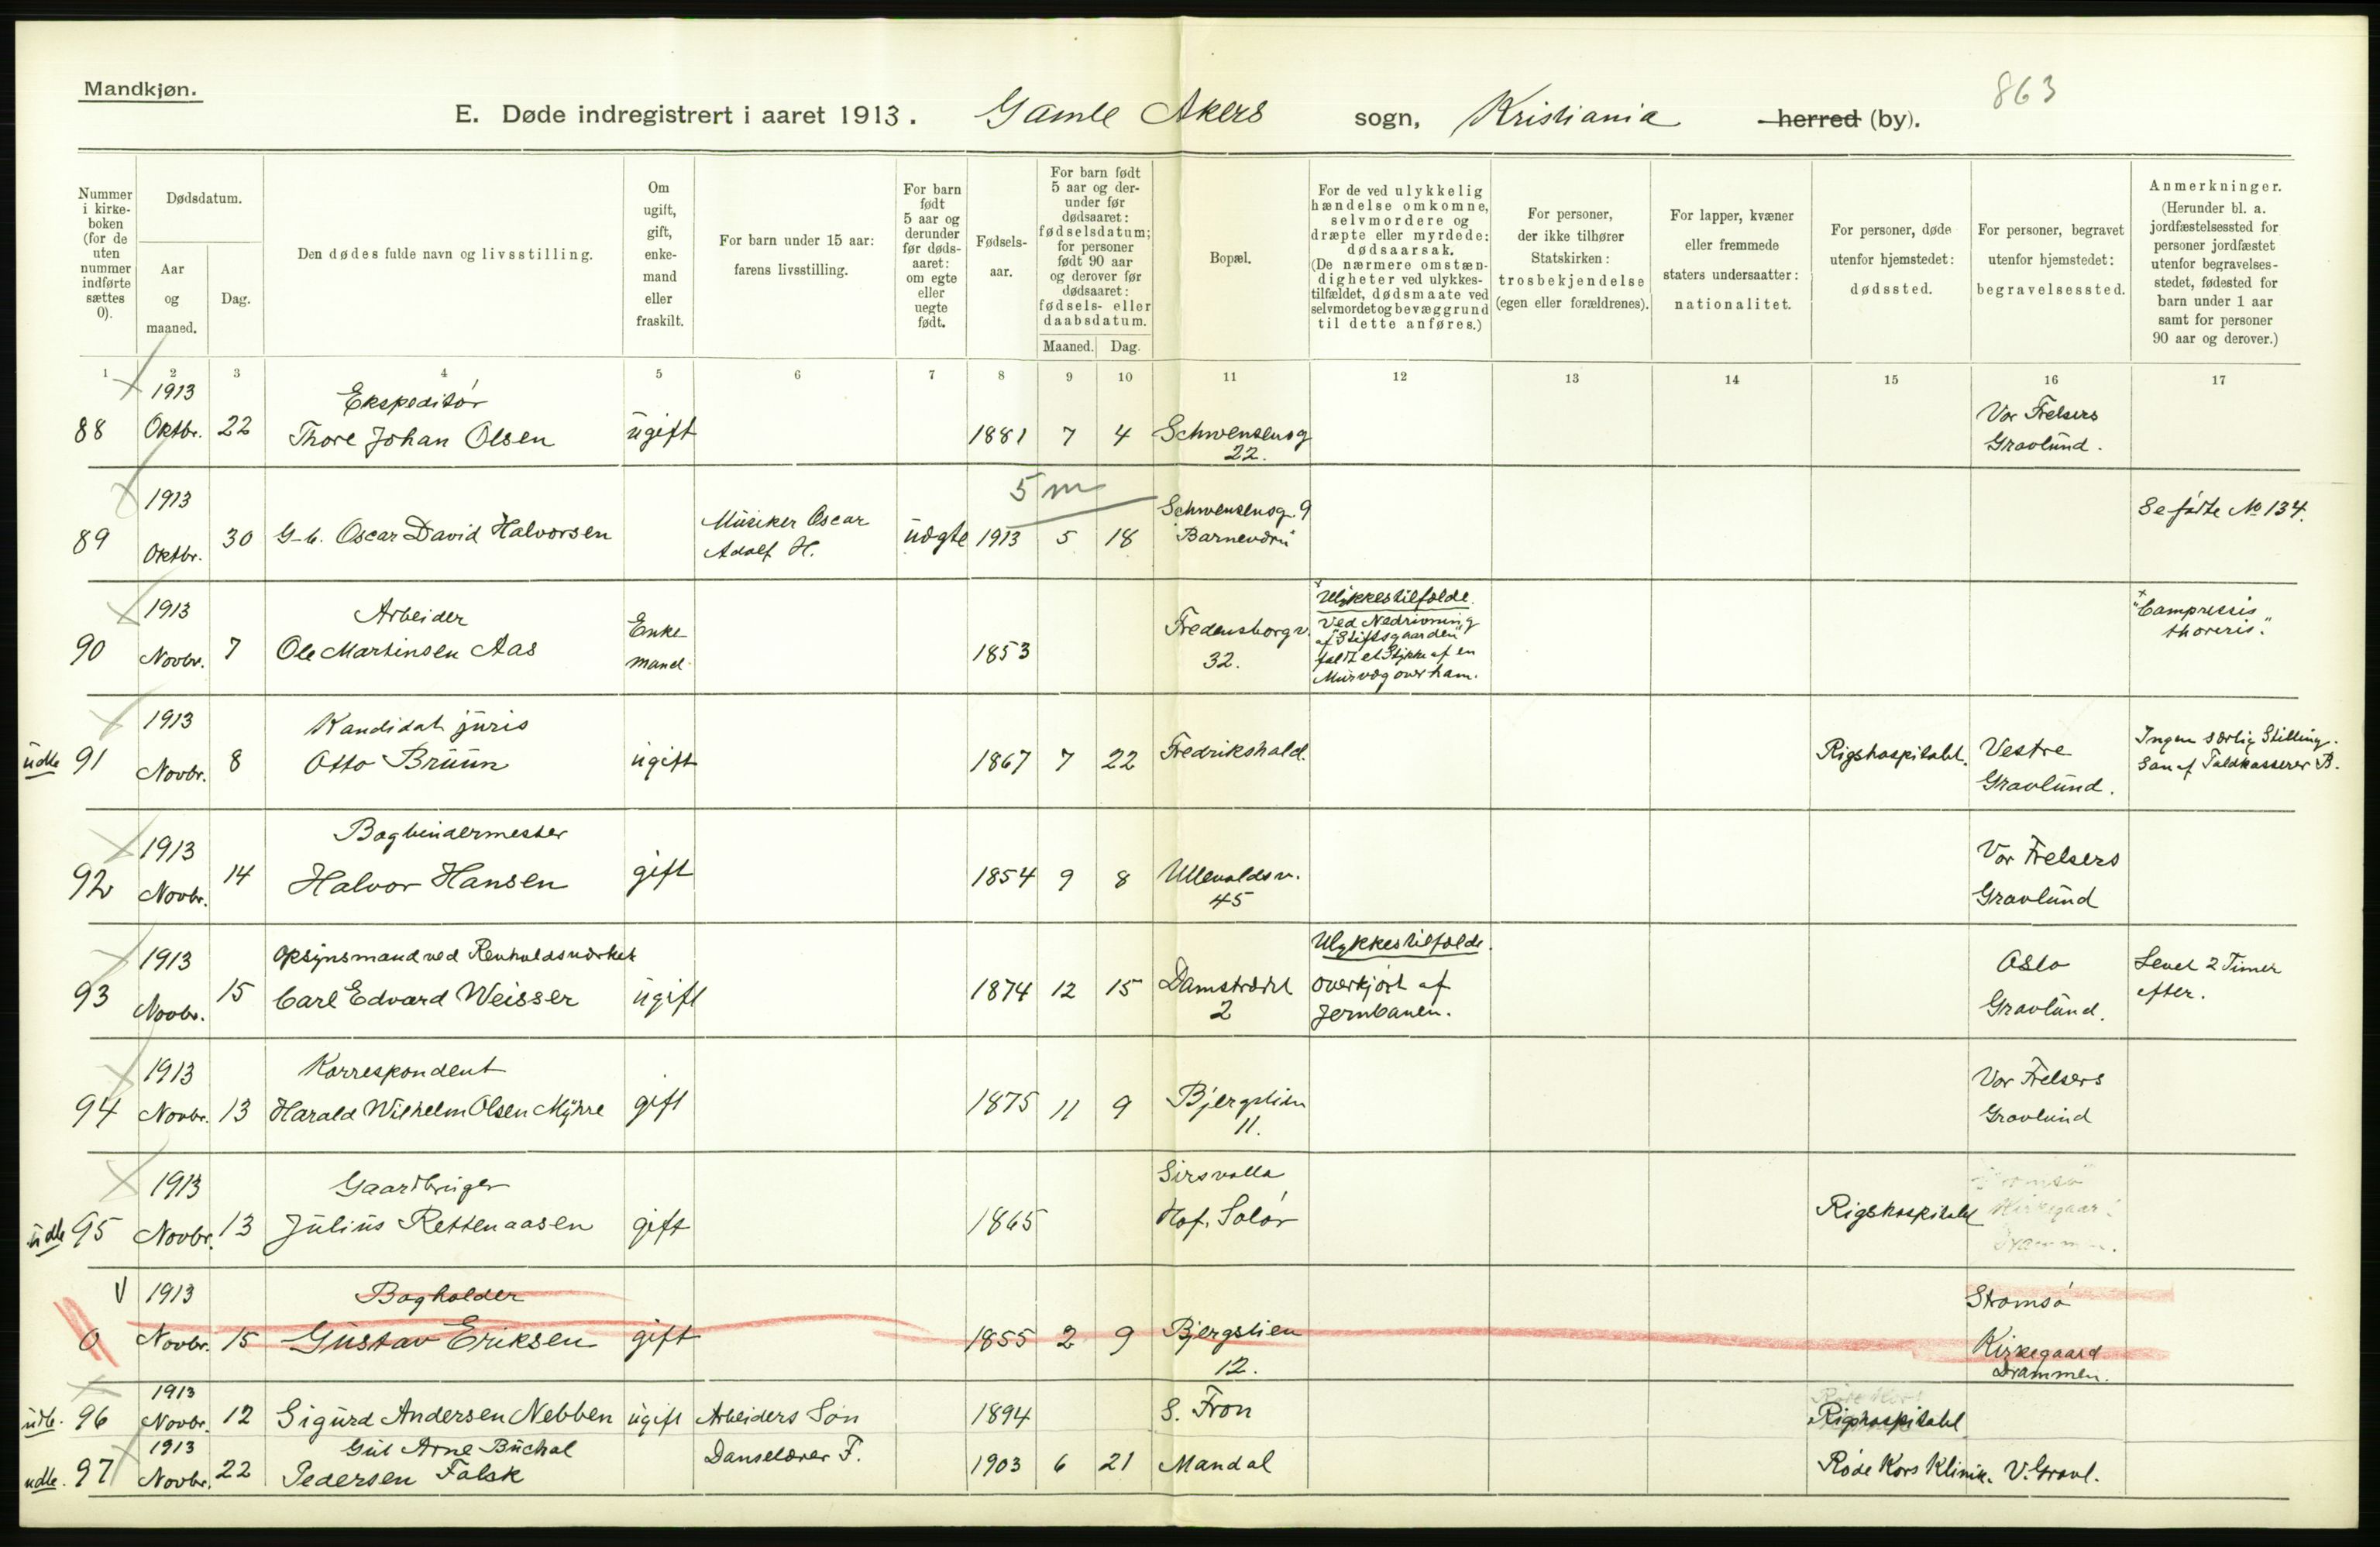 Mandkjøn.
863
E. Døde indregistrert i aaret 1913. Gamle Akers sogn, Kristiania herred (by).
Nummer i kirke-boken (for de uten nummer indførte sættes 0).
Dødsdatum.
Aar og maaned.
Dag.
Den dødes fulde navn og livsstilling.
Om ugift, gift, enke-mand eller fraskilt.
For barn under 15 aar: farens livsstilling.
For barn født 5 aar og derunder før døds-aaret: om egte eller uegte født.
Fødsels-aar.
For barn født 5 aar og der-under før dødsaaret: fødselsdatum; for personer født 90 aar og derover før dødsaaret: fødsels- eller daabsdatum.
Maaned. Dag.
Bopæl.
For de ved ulykkelig hændelse omkomne, selvmordere og dræpte eller myrdede: dødsaarsak. (De nærmere omstæn-digheter ved ulykkes-tilfældet, dødsmaate ved selvmordet og bevæggrund til dette anføres.)
For personer, der ikke tilhører Statskirken: trosbekjendelse (egen eller forældrenes).
For lapper, kvæner eller fremmede staters undersaatter: nationalitet.
For personer, døde utenfor hjemstedet: dødssted.
For personer, begravet utenfor hjemstedet: begravelsessted.
Anmerkninger. (Herunder bl. a. jordfæstelsessted for personer jordfæstet utenfor begravelses-stedet, fødested for barn under 1 aar samt for personer 90 aar og derover.)
1 2 3 4 5 6 7 8 9 10 11 12 13 14 15 16 17
1913 Ekspeditør Vor Frelsers
88 Oktbr. 22 Thore Johan Olsen ugift 1881 7 4 Schwensensg Gravlund.
22.
5 m
1913 Musiker Oscar Schwensensg. 9 Se fødte No 134.
89 Oktbr. 30 G-b. Oscar David Halvorsen Adolf H. uægte 1913 5 18
1913 Arbeider Enke- Fredensborgv. Ulykkestilfælde. "Compressis
90 Novbr. 7 Ole Martinsen Aas mand 1853 32. Ved Nedrivning thoracis."
af "Stiftsgaarden"
faldt et Stykke af en
Murvæg over ham.
1913 Kandidat juris Ingen særlig Stilling.
udb 91 Novbr. 8 Otto Bruun ugift 1867 7 22 Fredrikshald. Rigshospitalet. Vestre Søn af Toldkasserer B.
Gravlund.
1913 Bogbindermester Vor Frelsers
92 Novbr. 14 Halvor Hansen gift 1854 9 8 Ullevoldsv. Gravlund
45
1913 Opsynsmand ved Renholdsværket Ulykkestilfælde. Oslo Levet 2 Timer
93 Novbr. 15 Carl Edvard Weisser ugift 1874 12 15 Damstrædet overkjørt af Gravlund. efter.
2 Jernbanen.
1913 Korrespondent Vor Frelsers
94 Novbr. 13 Harald Wilhelm Olsen Myhre gift 1875 11 9 Bjergstien Gravlund
11.
1913 Gaardbruger
udb 95 Novbr. 13 Julius Rettenaasen gift 1865 Hof, Solør Rigshospitalet
1913 Bogholder Strømsø
0 Novbr. 15 Gustav Eriksen gift 1855 2 9 Bjergstien Kirkegaard
12. Drammen.
1913
udb. 96 Novbr. 12 Sigurd Andersen Nebben ugift Arbeiders Søn 1894 S. Fron Rigshospitalet
1913 Arne Danselærer F.
udb. 97 Novbr. 22 Pedersen Falsk 1903 6 21 Mandal Røde Kors Klinik. V. Gravl.